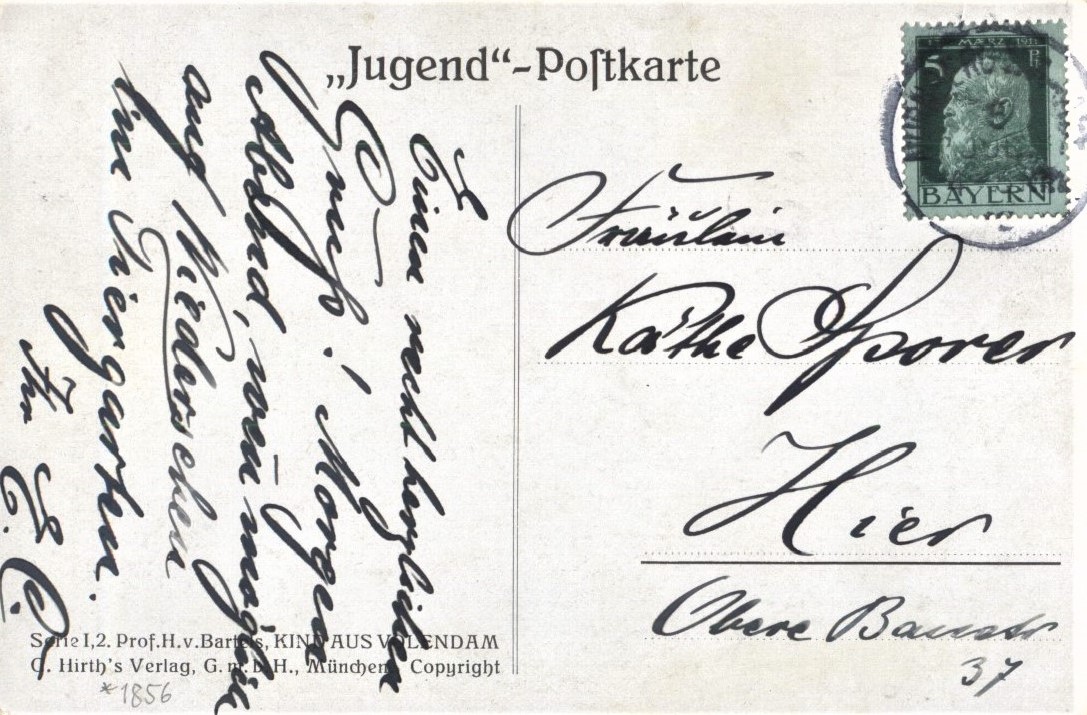 „Jugend“-Postkarte
12. MÄRZ 1911
5 Pf
BAYERN
Einen recht herzlichen
Gruß! Morgen
Abend, wen möglich
auf Wiedersehen
im Tiergarten.
Ihr
Fräulein
Käthe Sporer
Hier
Obere Baustr
37
Serie I,2. Prof. H. v. Bartels, KIND AUS VOLENDAM
G. Hirth's Verlag, G. m. b. H., München. Copyright
*1856